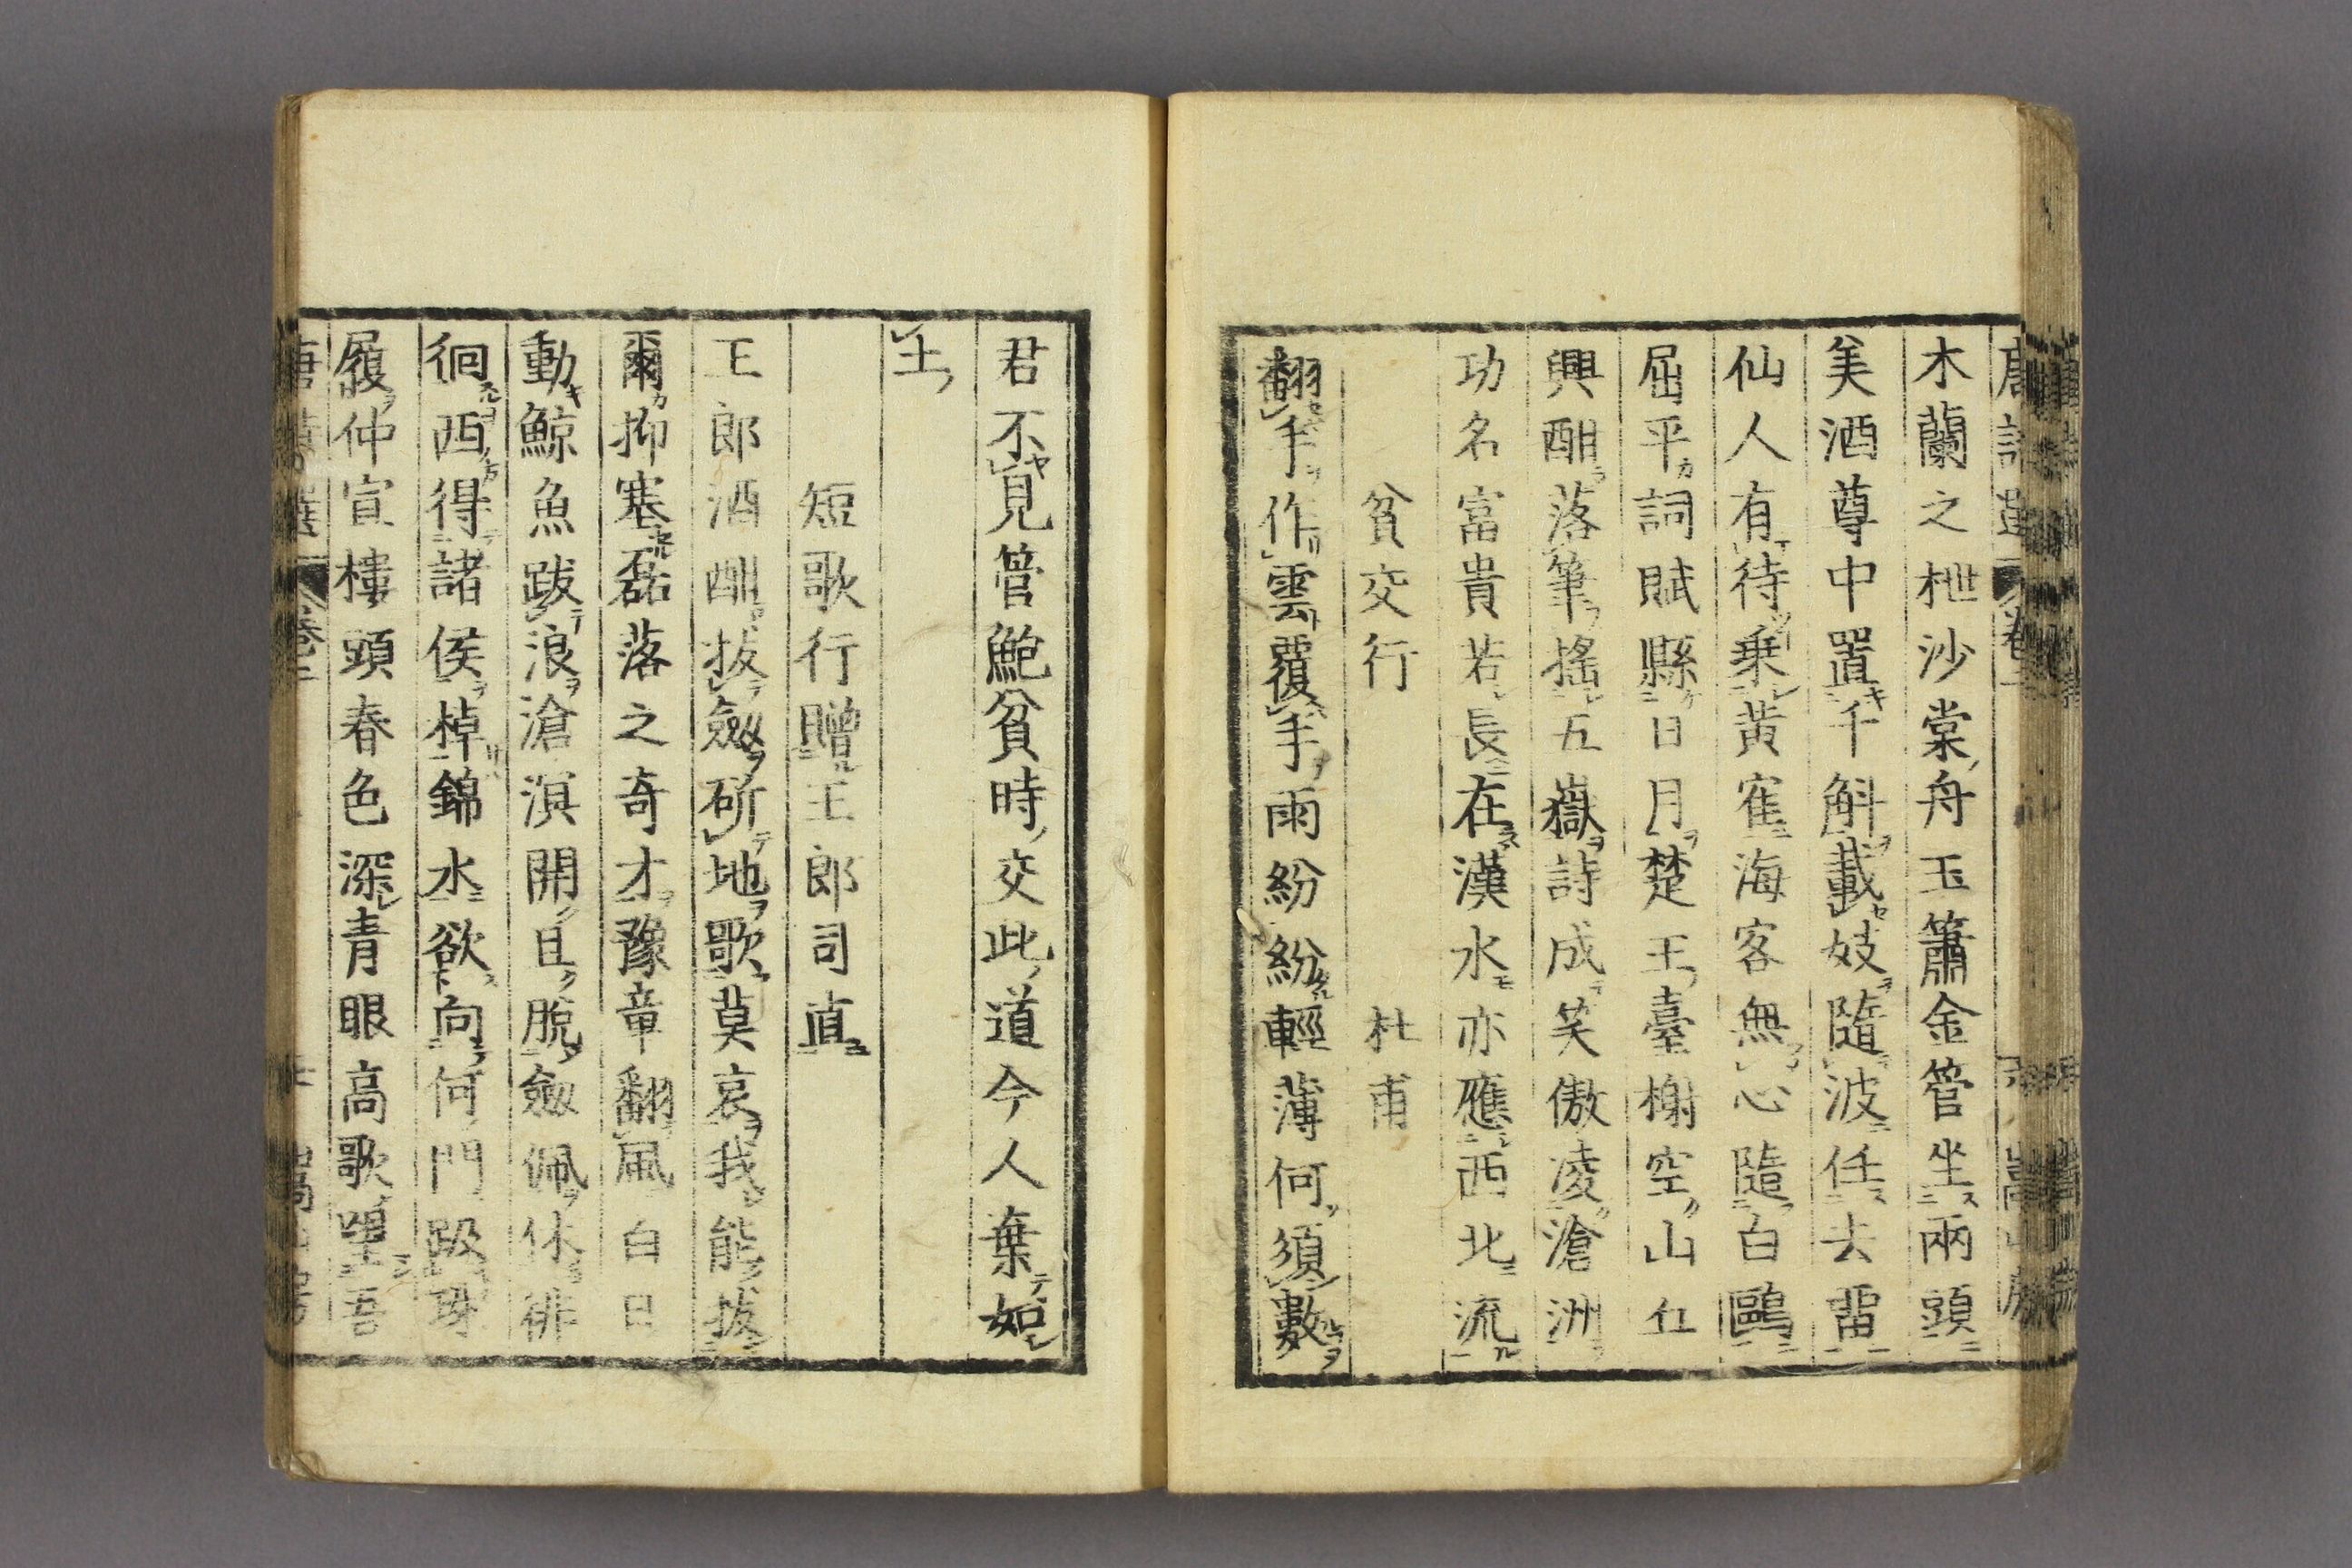 木蘭之枻沙棠舟玉簫金管坐兩頭
美酒尊中置千斛載妓隨波任去畱
仙人有待乗黄寉海客無心隨白鷗
屈平詞賦縣日月楚王臺榭空山丘
興酣落筆搖五嶽詩成笑傲凌滄洲
功名富貴若長在漢水亦應西北流
貧交行　杜甫
翻手作雲覆手雨紛紛輕薄何須數
君不見管鮑貧時交此道今人棄如
土
短歌行贈王郎司直
王郎酒酣拔劔斫地歌莫哀我能拔
爾抑塞磊落之奇才豫章翻風白日
動鯨魚跋浪滄溟開且脫劔佩休徘
徊西得諸侯棹錦水欲向何門趿珠
履仲宣樓頭春色深青眼高歌望吾